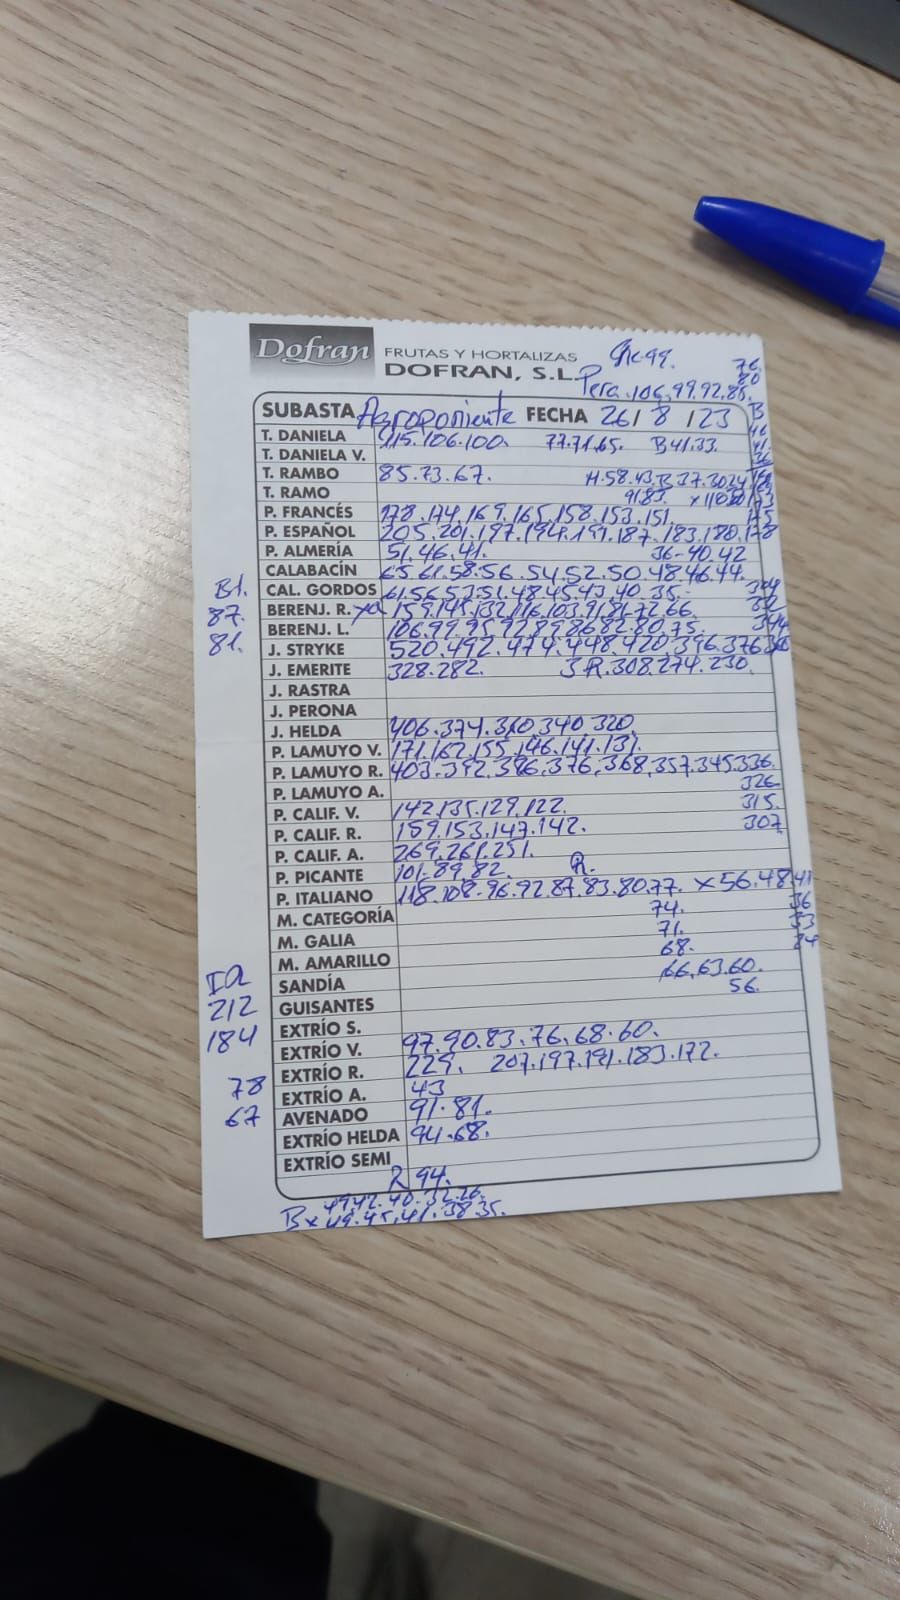 Dofran FRUTAS Y HORTALIZAS
DOFRAN, S.L.
Che 99. 76.
80
Pera.106.99.92.85.
SUBASTA Agroponiente FECHA 26/8/23 B
T. DANIELA 115.106.100. 77.71.65. B41.33.
T. DANIELA V.
T. RAMBO 85.73.67. H.58.43.B 37.30
T. RAMO 91.83.
P. FRANCÉS 178.174.169.165.158.153.151.
P. ESPAÑOL 205.201.197.194.191.187.183.180.178
P. ALMERÍA 51.46.41. 36-40.42
CALABACÍN 65.61.58.56.54.52.50.48.46.44.
B1. CAL. GORDOS 61.56.53.51.48.45.43.40.35.
87. BERENJ. R. 159.145.132.116.103.91.81.72.66.
81. BERENJ. L. 106.99.95.92.89.86.82.80.75. 344
J. STRYKE 520.492.474.448.420.396.376
J. EMERITE 328.282. 308.274.230.
J. RASTRA
J. PERONA
J. HELDA 406.374.360.340.320
P. LAMUYO V. 171.162.155.146.141.131.
P. LAMUYO R. 403.392.386.376.368.357.345.336.
P. LAMUYO A. 326
P. CALIF. V. 142.135.129.122. 315.
P. CALIF. R. 159.153.147.142. 307
P. CALIF. A. 269.261.251.
P. PICANTE 101.89.82. R.
P. ITALIANO 118.108.96.92.87.83.80.77. x56.48.41
M. CATEGORÍA 74. 36
M. GALIA 71. 33
M. AMARILLO 68.
SANDÍA 66.63.60.
212 GUISANTES 56.
184 EXTRÍO S.
EXTRÍO V. 97.90.83.76.68.60.
78 EXTRÍO R. 229. 207.197.191.183.172.
67 EXTRÍO A. 43
AVENADO 91.81.
EXTRÍO HELDA 94.68.
EXTRÍO SEMI
R 94.
49.42.40.32.26.
Bx 49.45.41.38.35.